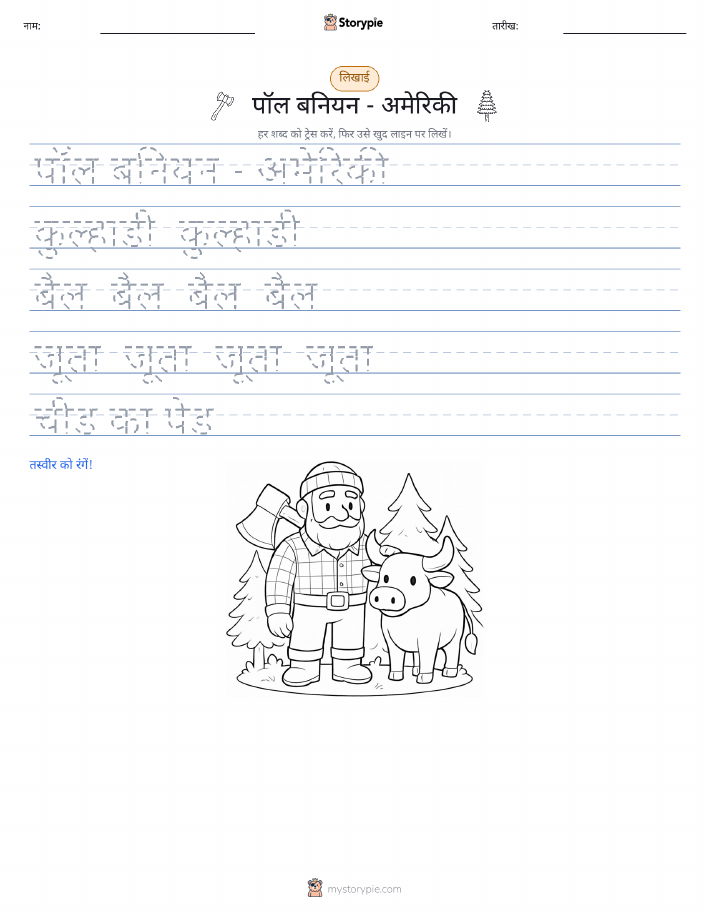 नाम:
Storypie
तारीख:
लिखाई
पॉल बनियन - अमेरिकी
हर शब्द को ट्रेस करें, फिर उसे खुद लाइन पर लिखें।
पॉल बनियन - अमेरिकी
कुल्हाडी कुल्हाडी
बैल बैल बैल बैल
जूता जूता जूता जूता
चीड का पेड
तस्वीर को रंगें!
mystorypie.com